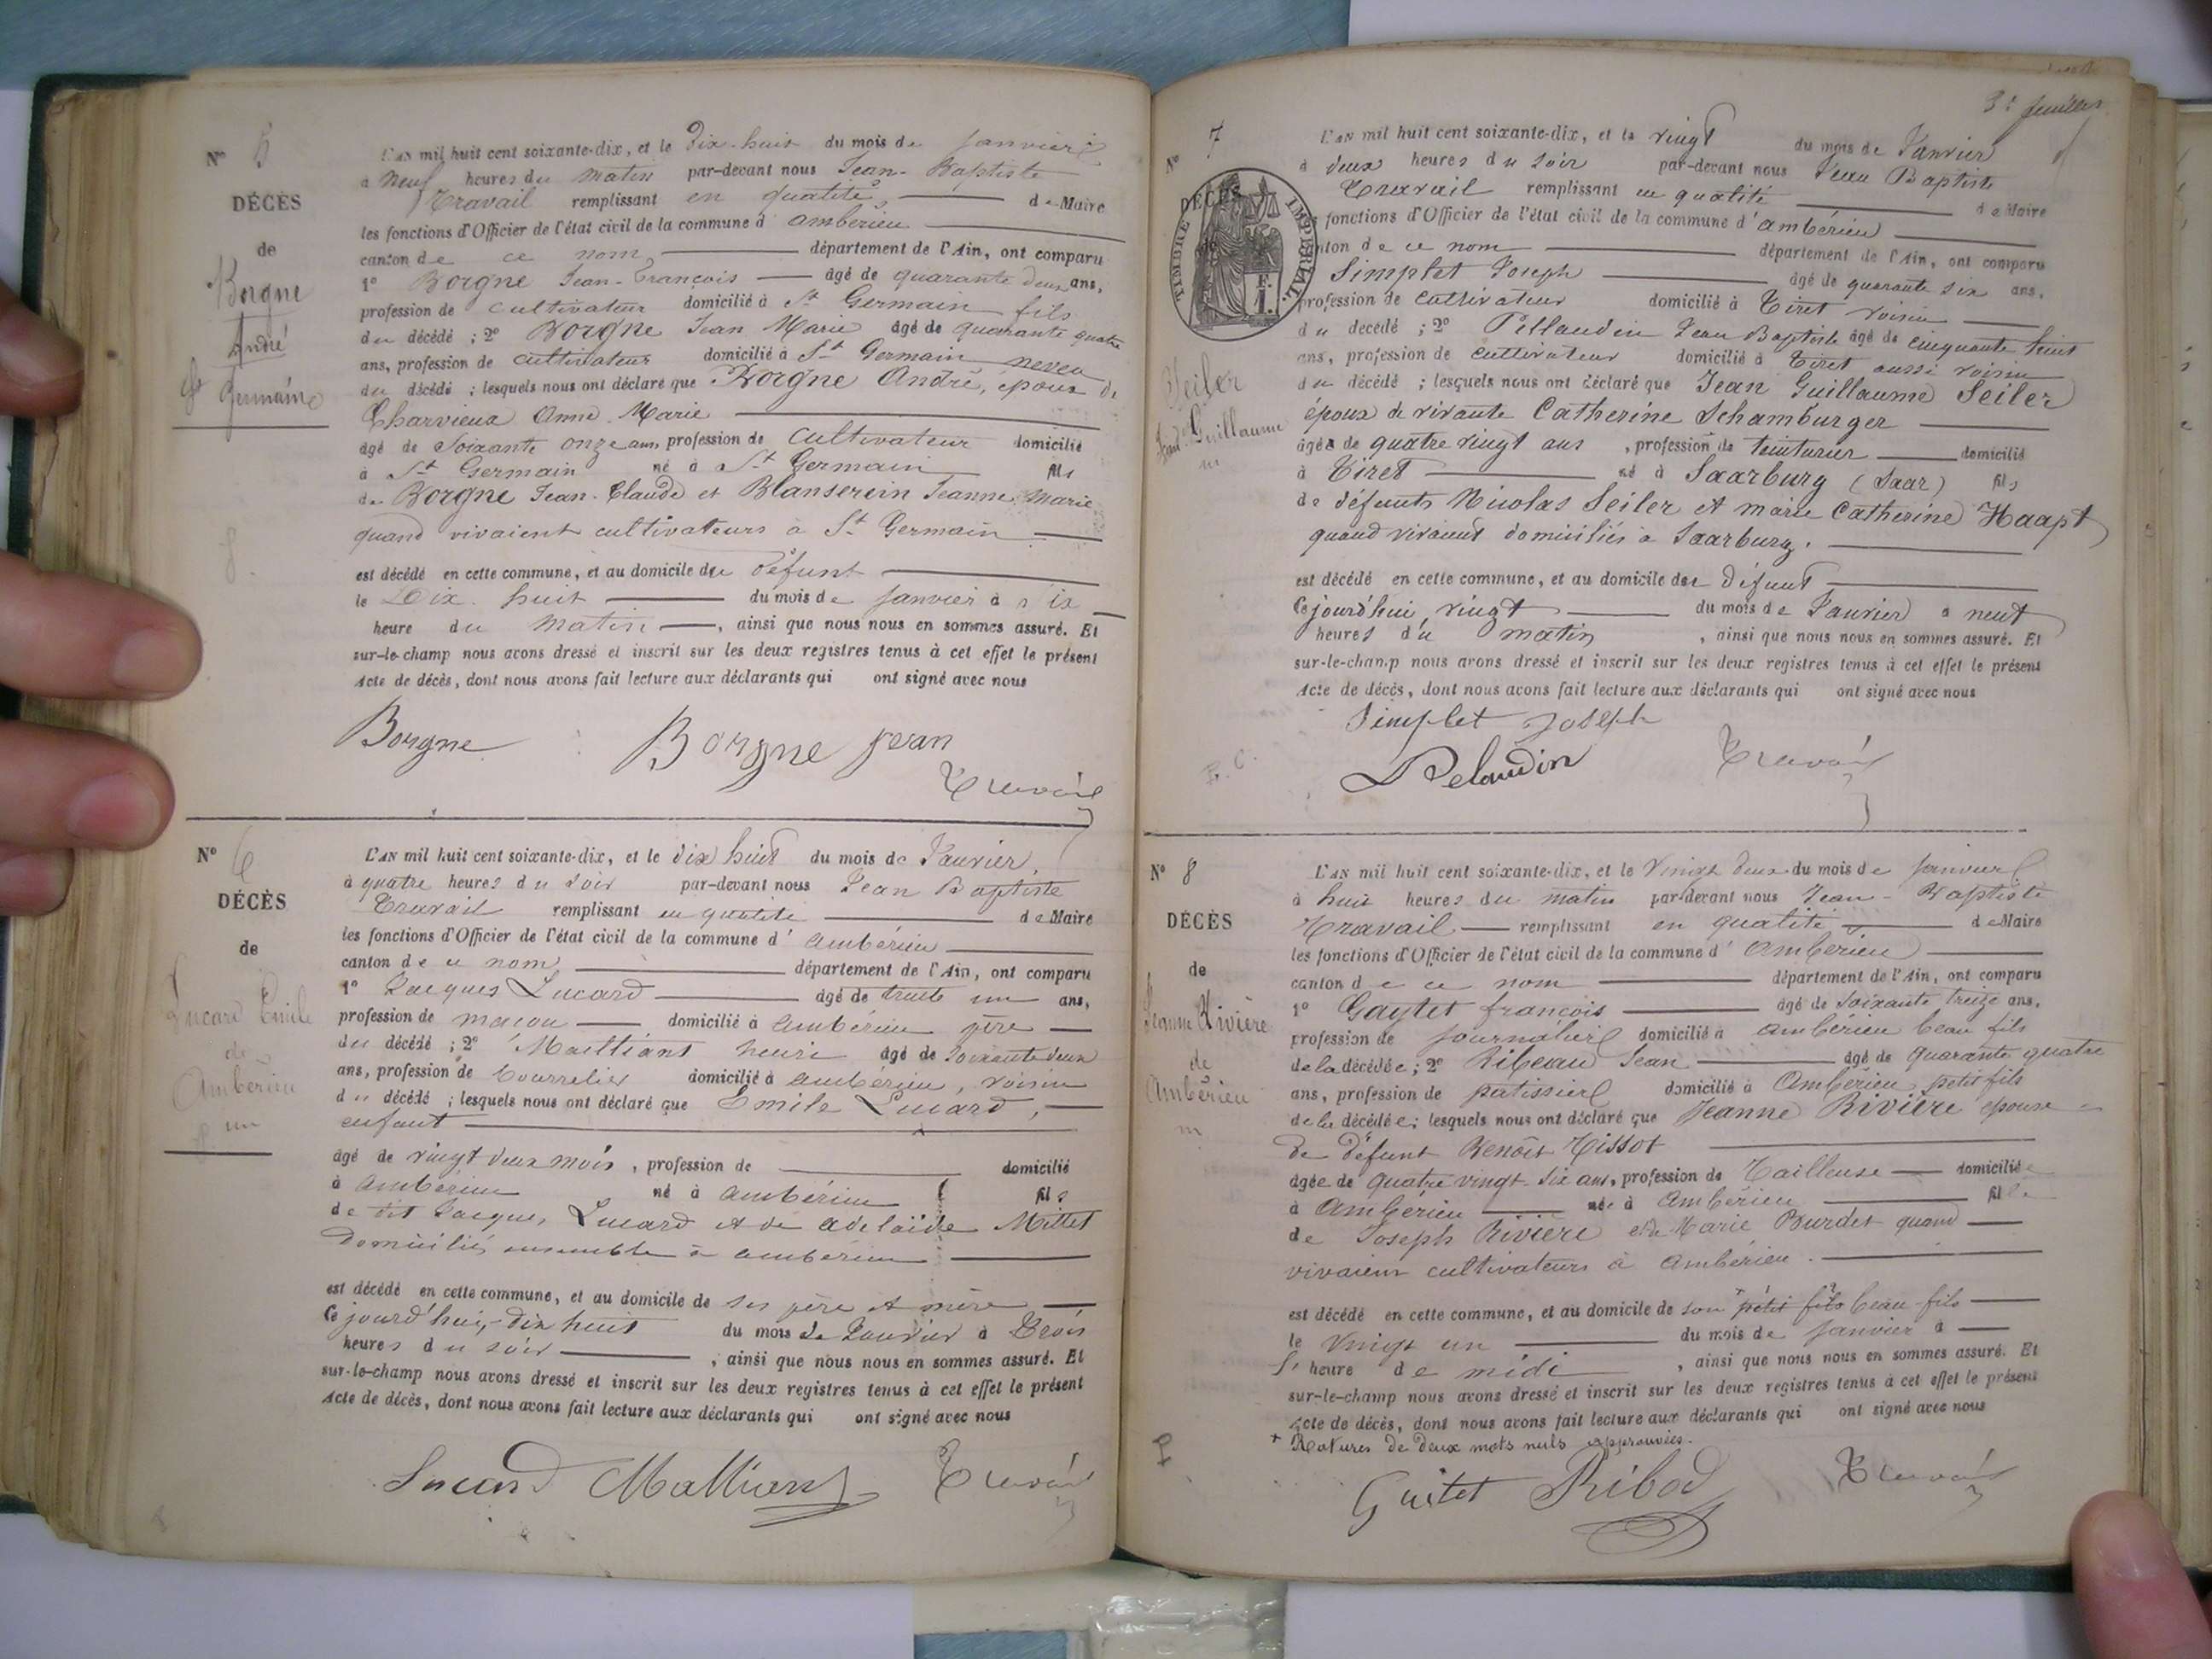 N° 5
DÉCÈS
de
Borgne
André
St Germain
L'AN mil huit cent soixante-dix, et le Dix-huit du mois de Janvier
à Neuf heures du Matin par-devant nous Jean-Baptiste
Travail remplissant en qualité de Maire
les fonctions d'Officier de l'état civil de la commune d'ambérieu
canton de ce nom département de l'Ain, ont comparu
1° Borgne Jean-François âgé de quarante deux ans,
profession de cultivateur domicilié à St Germain fils
du décédé ; 2° Borgne Jean Marie âgé de quarante quatre
ans, profession de cultivateur domicilié à St Germain neveu
du décédé ; lesquels nous ont déclaré que Borgne André, époux de
Charvieux Anne-Marie
âgé de Soixante onze ans, profession de Cultivateur domicilié
à St Germain né à St Germain fils
de Borgne Jean-Claude et Blanserein Jeanne Marie
quand vivaient cultivateurs à St Germain
est décédé en cette commune, et au domicile du défunt
le Dix-huit du mois de Janvier à six
heure du Matin, ainsi que nous nous en sommes assuré. Et
sur-le-champ nous avons dressé et inscrit sur les deux registres tenus à cet effet le présent
Acte de décès, dont nous avons fait lecture aux déclarants qui ont signé avec nous
Borgne Borgne jean
Travail
N° 6
DÉCÈS
de
Lucard Emile
de
Ambérieu
L'AN mil huit cent soixante-dix, et le dix huit du mois de Janvier,
à quatre heures du soir par-devant nous Jean Baptiste
Travail remplissant en qualité de Maire
les fonctions d'Officier de l'état civil de la commune d'ambérieu
canton de ce nom département de l'Ain, ont comparu
1° Jacques Lucard âgé de trente un ans,
profession de maçon domicilié à ambérieu père
du décédé ; 2° Malliant henri âgé de soixante deux
ans, profession de bourrelier domicilié à ambérieu, voisin
du décédé ; lesquels nous ont déclaré que Emile Lucard,
enfant
âgé de vingt deux mois, profession de domicilié
à ambérieu né à ambérieu fils
de dit Jacques Lucard et de adelaïde Millet
domiciliés ensemble à ambérieu
est décédé en cette commune, et au domicile de ses père et mère
Ce jourd'hui, dix huit du mois de Janvier à Trois
heures du soir, ainsi que nous nous en sommes assuré. Et
sur-le-champ nous avons dressé et inscrit sur les deux registres tenus à cet effet le présent
Acte de décès, dont nous avons fait lecture aux déclarants qui ont signé avec nous
Lucard Malliant Travail
3e feuillet
N° 7
DÉCÈS
de
TIMBRE IMPERIAL
Seiler
Jean Guillaume
L'AN mil huit cent soixante-dix, et le vingt du mois de Janvier
à deux heures du soir par-devant nous Jean Baptiste
Travail remplissant en qualité de Maire
fonctions d'Officier de l'état civil de la commune d'ambérieu
canton de ce nom département de l'Ain, ont comparu
Simplet Joseph âgé de quarante six ans,
profession de cultivateur domicilié à Tiret voisin
du décédé ; 2° Pellaudin Jean Baptiste âgé de cinquante huit
ans, profession de cultivateur domicilié à Tiret aussi voisin
du décédé ; lesquels nous ont déclaré que Jean Guillaume Seiler
époux de vivante Catherine Schamburger
âgé de quatre vingt ans, profession de teinturier domicilié
à Tiret né à Saarburg (Saar) fils
de défunts Nicolas Seiler et marie Catherine Haapt
quand vivaient domiciliés à Saarburg.
est décédé en cette commune, et au domicile du défunt
Ce jourd'hui, vingt du mois de Janvier à neuf
heures du matin, ainsi que nous nous en sommes assuré. Et
sur-le-champ nous avons dressé et inscrit sur les deux registres tenus à cet effet le présent
Acte de décès, dont nous avons fait lecture aux déclarants qui ont signé avec nous
Simplet Joseph
Pelaudin Travail
N° 8
DÉCÈS
de
Jeanne Rivière
de
Ambérieu
L'AN mil huit cent soixante-dix, et le Vingt deux du mois de Janvier
à huit heures du matin par-devant nous Jean-Baptiste
Travail remplissant en qualité de Maire
les fonctions d'Officier de l'état civil de la commune d'ambérieu
canton de ce nom département de l'Ain, ont comparu
1° Gaytet françois âgé de soixante treize ans,
profession de journalier domicilié à ambérieu beau fils
de la décédée ; 2° Ribeau Jean âgé de quarante quatre
ans, profession de patissier domicilié à Ambérieu petit fils
de la décédée ; lesquels nous ont déclaré que Jeanne Rivière épouse
de défunt Benoît Tissot
âgée de quatre vingt six ans, profession de Tailleuse domiciliée
à Ambérieu née à Ambérieu fille
de Joseph Rivière et de Marie Bourdet quand
vivaient cultivateurs à Ambérieu.
est décédé en cette commune, et au domicile de son petit fils beau-fils
le Vingt un du mois de Janvier à
heure de midi, ainsi que nous nous en sommes assuré. Et
sur-le-champ nous avons dressé et inscrit sur les deux registres tenus à cet effet le présent
Acte de décès, dont nous avons fait lecture aux déclarants qui ont signé avec nous
+ Ratures de deux mots nuls approuvées.
Guitet Ribod Travail